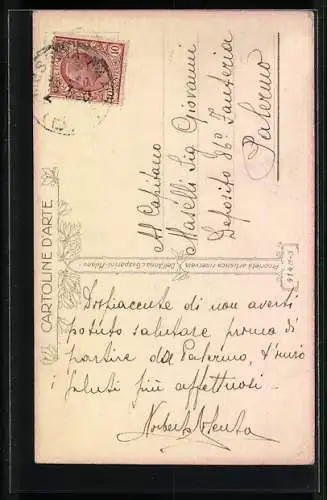 CARTOLINE D'ARTE
Al Capitano
Maselli Sig Giovanni
Deposito 86º Fanteria
Palermo
Proprietà artistica riservata
Dell'Anna & Gasparini - Milano
Dispiacente di non averti
potuto salutare prima di
partire da Palermo, t'invio
i saluti più affettuosi -